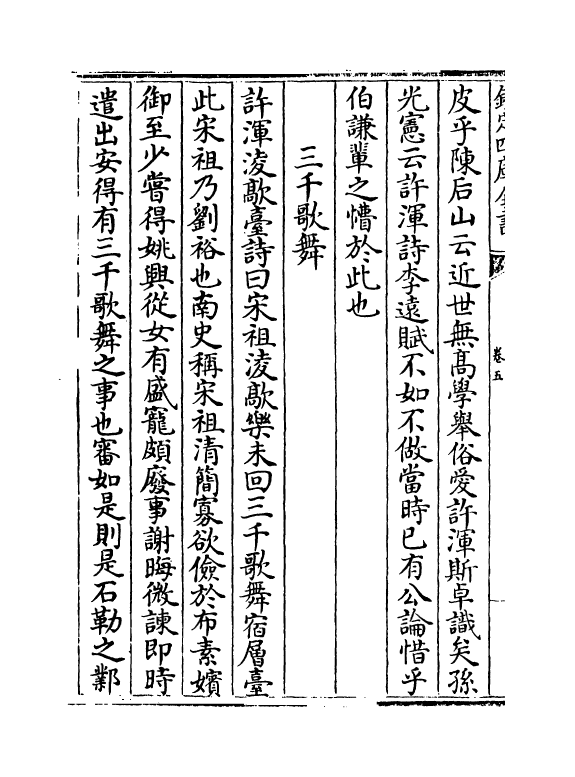 欽定四庫全書
卷五
皮乎陳后山云近世無髙學舉俗愛許渾斯卓識矣孫
光憲云許渾詩李遠賦不如不做當時已有公論惜乎
伯謙輩之懵於此也
三千歌舞
許渾淩歊臺詩曰宋祖淩歊樂未回三千歌舞宿層臺
此宋祖乃劉裕也南史稱宋祖清簡寡欲儉於布素嬪
御至少嘗得姚興從女有盛寵頗廢事謝晦微諫即時
遣出安得有三千歌舞之事也審如是則是石勒之鄴